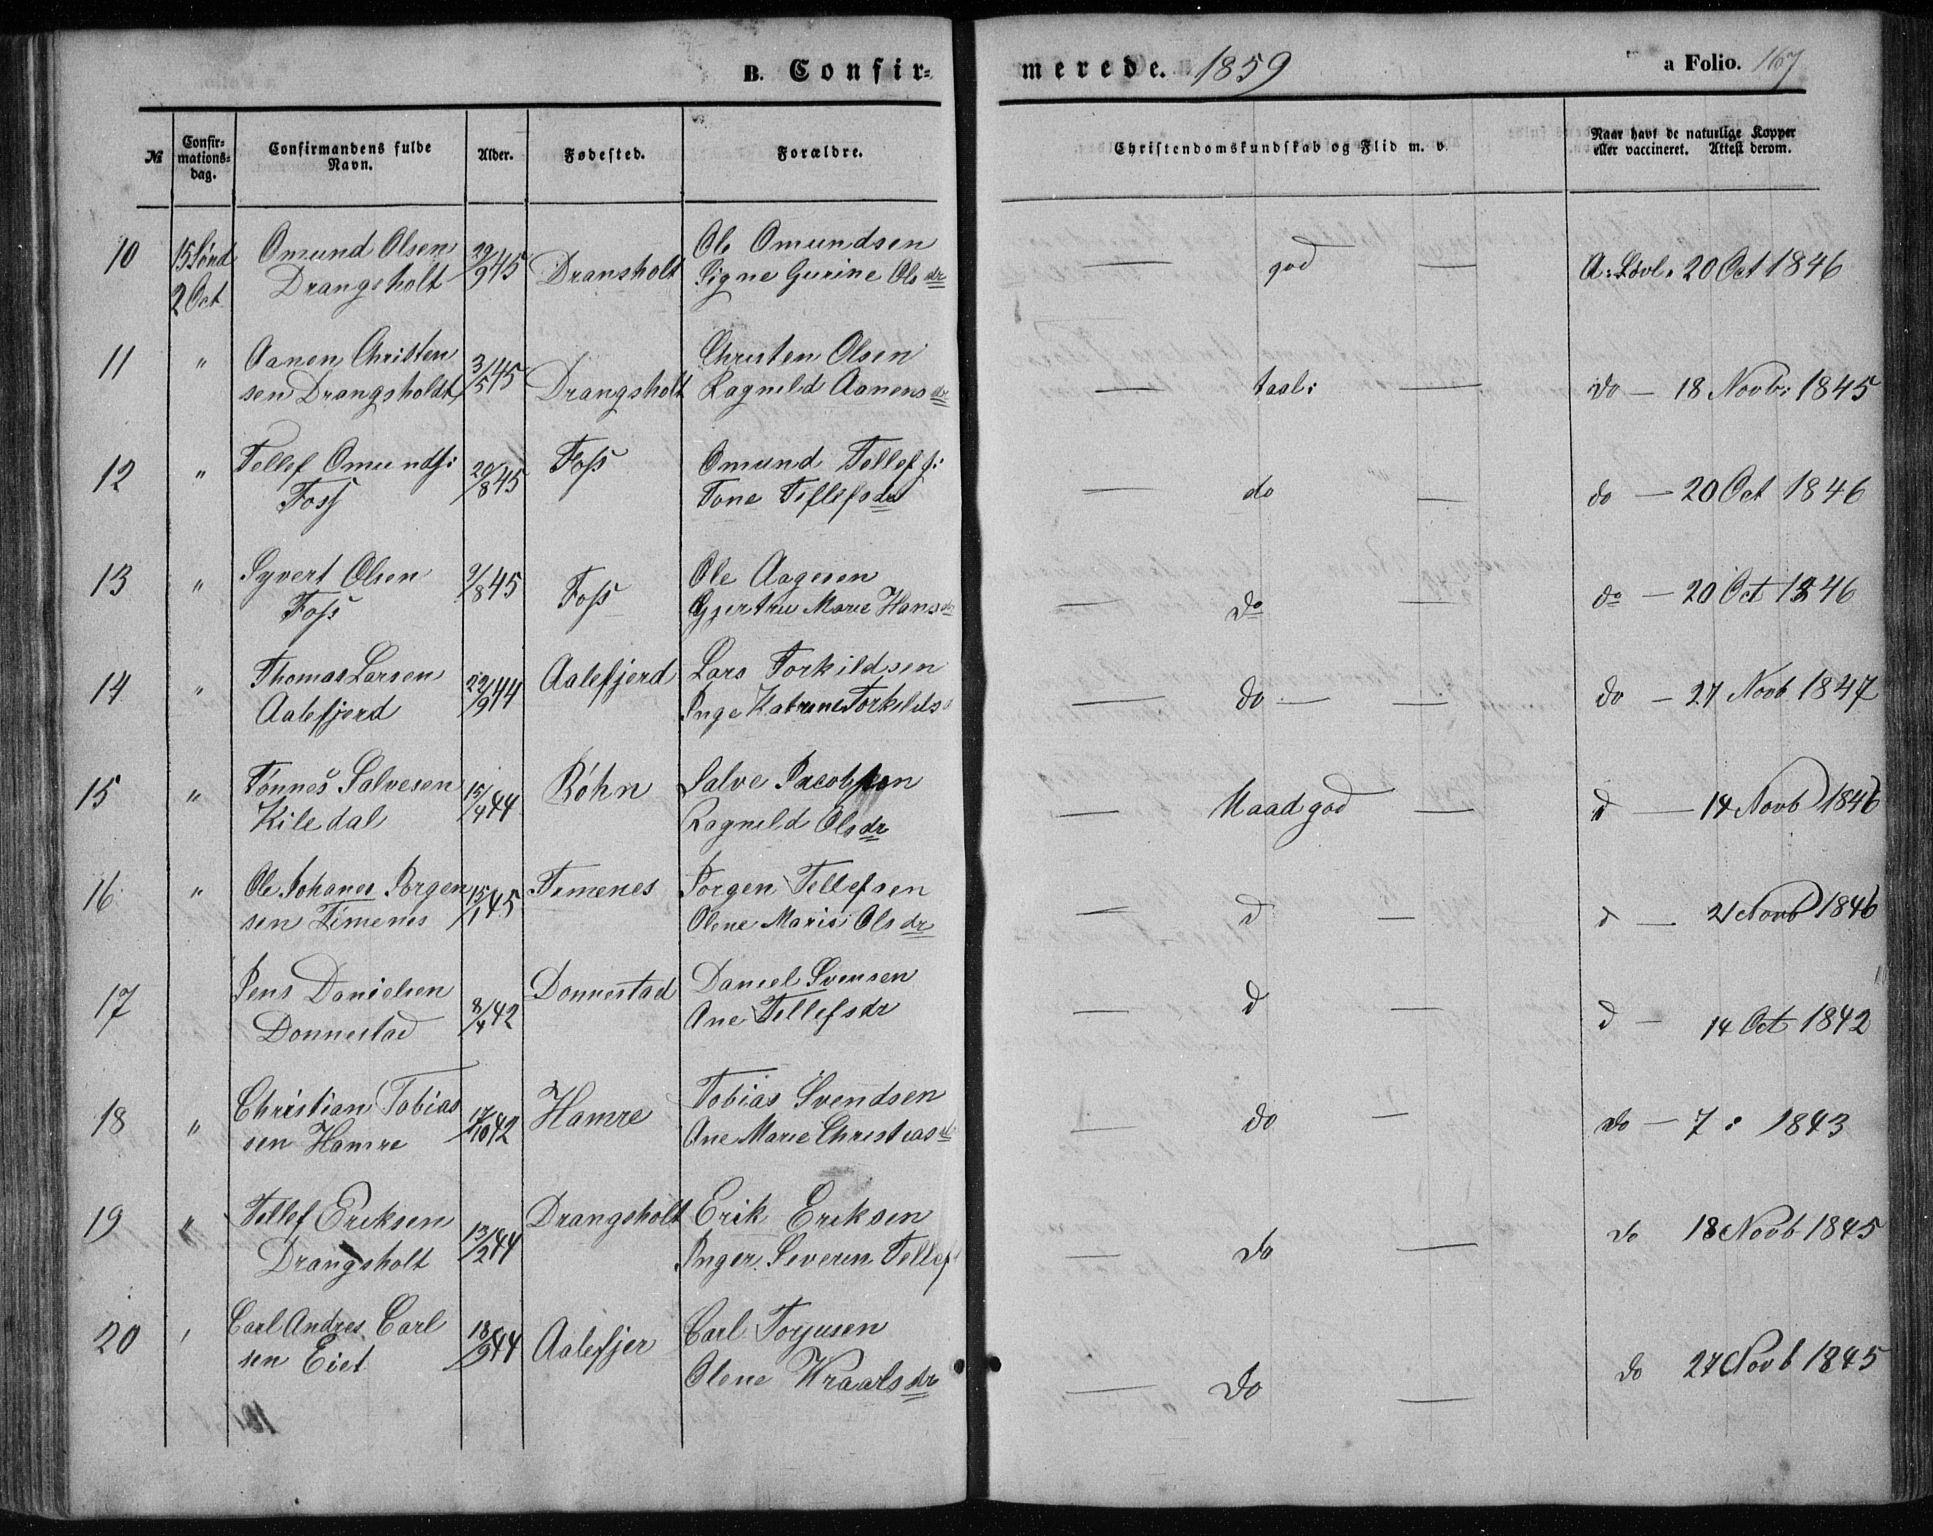 B. Confir-
merede. 1859
a Folio. 167
№
Confir-
mations-
dag.
Confirmandens fulde
Navn.
Alder.
Fødested.
Forældre.
Christendomskundskab og Flid m. v.
Naar havt de naturlige Kopper
eller vaccineret. Attest derom.
10 15 Sønd Omund Olsen 29/9 45 Dransholt Ole Omundsen — god — A: Ldvl. 20 Oct 1846
2 Oct Drangsholt Signe Gurine Olsdr
11 " Aanen Christen 3/5 45 Drangsholt Christen Olsen — taal: — do — 18 Novb: 1845
sen Drangsholdt Ragnild Aanensdr
12 " Tellef Omunds: 20/8 45 Foss Omund Tellefs: — do — do — 20 Oct 1846
Foss Tone Tellefsdr
13 " Syvert Olsen 9/8 45 Foss Ole Aagesen — do — do — 20 Oct 1846
Foss Gjertru Marie Hansdr
14 " Thomas Larsen 22/9 44 Aalefjerd Lars Torkildsen — do — — do — 27 Novb 1847
Aalefjerd Inge Katrine Torkilds
15 " Tønnes Salvesen 15/4 44 Røhn Salve Jacobsen — Maadgod — d — 14 Novb 1846
Kiledal Ragnild Olsdr
16 " Ole Johanes Jørgen 15/1 45 Timenes Jørgen Tellefsen — d — d — 21 Novb 1846
sen Timenes Olene Marie Olsdr
17 Jens Danielsen 8/4 42 Donnestad Daniel Svensen — d — d — 14 Oct 1842
Donnestad Ane Tellefsdr
18 " Christian Tobias 17/10 42 Hamre Tobias Svendsen — do — do — 7 : 1843
sen Hamre Ane Marie Christiasd
19 " Tellef Eriksen 13/2 44 Drangsholt Erik Eriksen — do — do 18 Novb 1845
Drangsholt Inger Severin Tellef
20 ' Carl Andres Carl 18/9 44 Aalefjer Carl Torjusen — Do — do 24 Novb 1845
sen Eiet Olene Kraalsdr